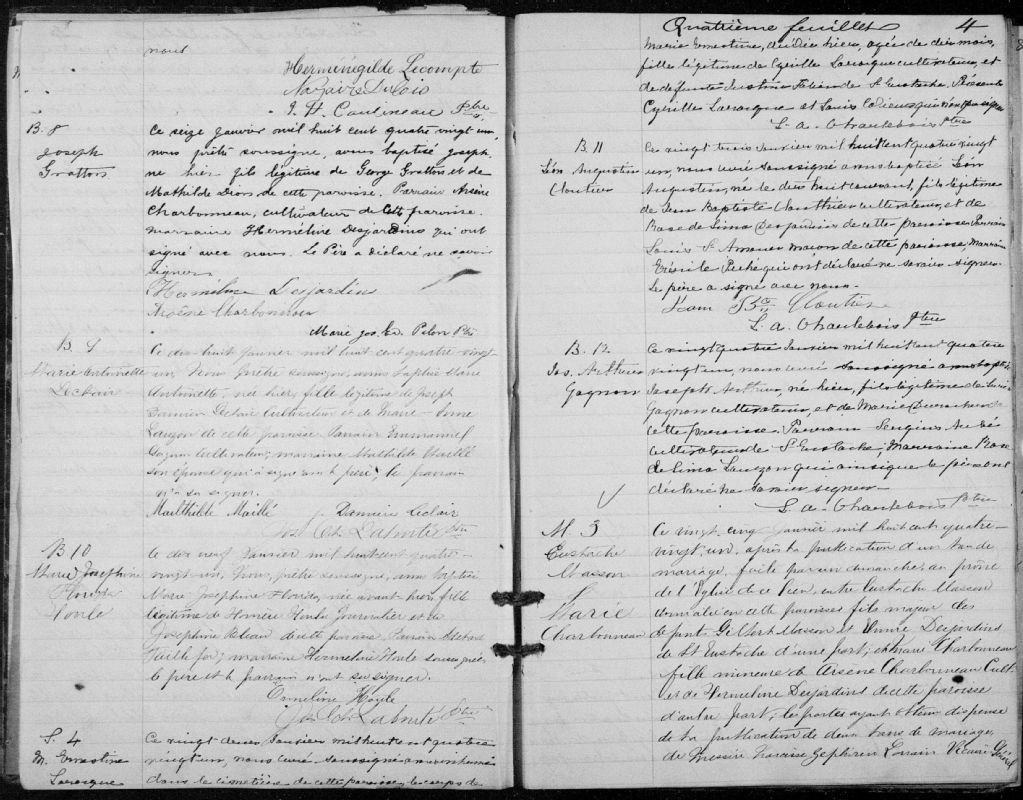 nous
Herménégilde Lecompte
Narcisse Dubois
J. H. Coutineau Ptre
B. 8
Joseph
Gratton
Ce seize janvier mil huit cent quatre vingt un,
nous prêtre soussigné, avons baptisé Joseph,
né hier, fils légitime de George Gratton et de
Mathilde Dion de cette paroisse. Parrain Arsène
Charbonneau, cultivateur de cette paroisse.
marraine Herméline Desjardins qui ont
signé avec nous. Le Père a déclaré ne savoir
signer.
Herméline Desjardins
Arsène Charbonneau
Marie Jos. Ed. Pilon Ptre
B. 9
Marie Antoinette
Leclair
Ce dix huit janvier mil huit cent quatre vingt
un, Nous prêtre soussigné, avons baptisé Marie
Antoinette, née hier, fille légitime de Joseph
Damien Leclair Cultivateur et de Marie-Anne
Lauzon de cette paroisse Parrain Emmanuel
Gagnon Cultivateur; marraine Mathilde Maillé
son épouse qui a signé avec le père; le parrain
n'a su signer.
Mathilde Maillé Damien Leclair
Jos. Ch. Labonté Ptre
B 10
Marie Josephine
Florida
Houle
Le dix neuf Janvier mil huit cent quatre-
vingt un, Nous, prêtre soussigné, avons baptisé
Marie Josephine Florida, née avant hier, fille
légitime de Homère Houle Journalier et de
Josephine de cette paroisse, Parrain
marraine Hermeline Houle soussignée,
le père et le parrain n'ont su signer.
Ermeline Houle
Jos. Ch. Labonté Ptre
S. 4
M. Ernestine
Larocque
Ce vingt deux Janvier mil huit cent quatre
vingt un, nous curé soussigné avons inhumé
dans le cimetière de cette paroisse, le corps de
Quatrième feuillet 4
Marie Ernestine, décédée hier, agée de dix mois,
fille légitime de Cyrille Larocque cultivateur, et
de défunte Justine de St Eustache. Présents
Cyrille Larocque et Louis qui n'ont pu signer
L. a. Chantebois Ptre
B. 11
Léon Augustin
Cloutier
Ce vingt trois Janvier mil huit cent quatre vingt
un, nous curé soussigné avons baptisé Léon
Augustin, né le dix huit courant, fils légitime
de Jean Baptiste Cloutier cultivateur, et de
Rose de Lima Desjardins de cette paroisse. Parrain
Louis St Amour maçon de cette paroisse, Marraine
Péché qui ont déclaré ne savoir signer.
Le père a signé avec nous.
Jean Bte Cloutier
L. a. Chantebois Ptre
B. 12
Jos. Arthur
Gagnon
Ce vingt quatre Janvier mil huit cent quatre
vingt un, nous curé soussigné avons baptisé
Joseph Arthur, né hier, fils légitime de
Gagnon cultivateur, et de Marie de
cette paroisse. Parrain
cultivateur de St Eustache, Marraine Rose
de Lima Lauzon qui ainsi que le père ont
déclaré ne savoir signer.
L. a. Chantebois Ptre
M. 3
Eustache
Masson
Marie
Charbonneau
Ce vingt-cinq janvier mil huit cent quatre-
vingt un, après la publication d'un ban de
mariage, faite par un dimanche, au prône
de l'Eglise de ce lieu, entre Eustache Masson
domicilié en cette paroisse fils majeur des
défunts Gilbert Masson et Desjardins
de St Eustache d'une part; et Marie Charbonneau
fille mineure de Arsène Charbonneau Cult.
et de Hermeline Desjardins de cette paroisse
d'autre part; les parties ayant obtenu dispense
de la publication de deux bans de mariage,
de Messire Narcisse Zéphirin Lorrain Vicaire Général